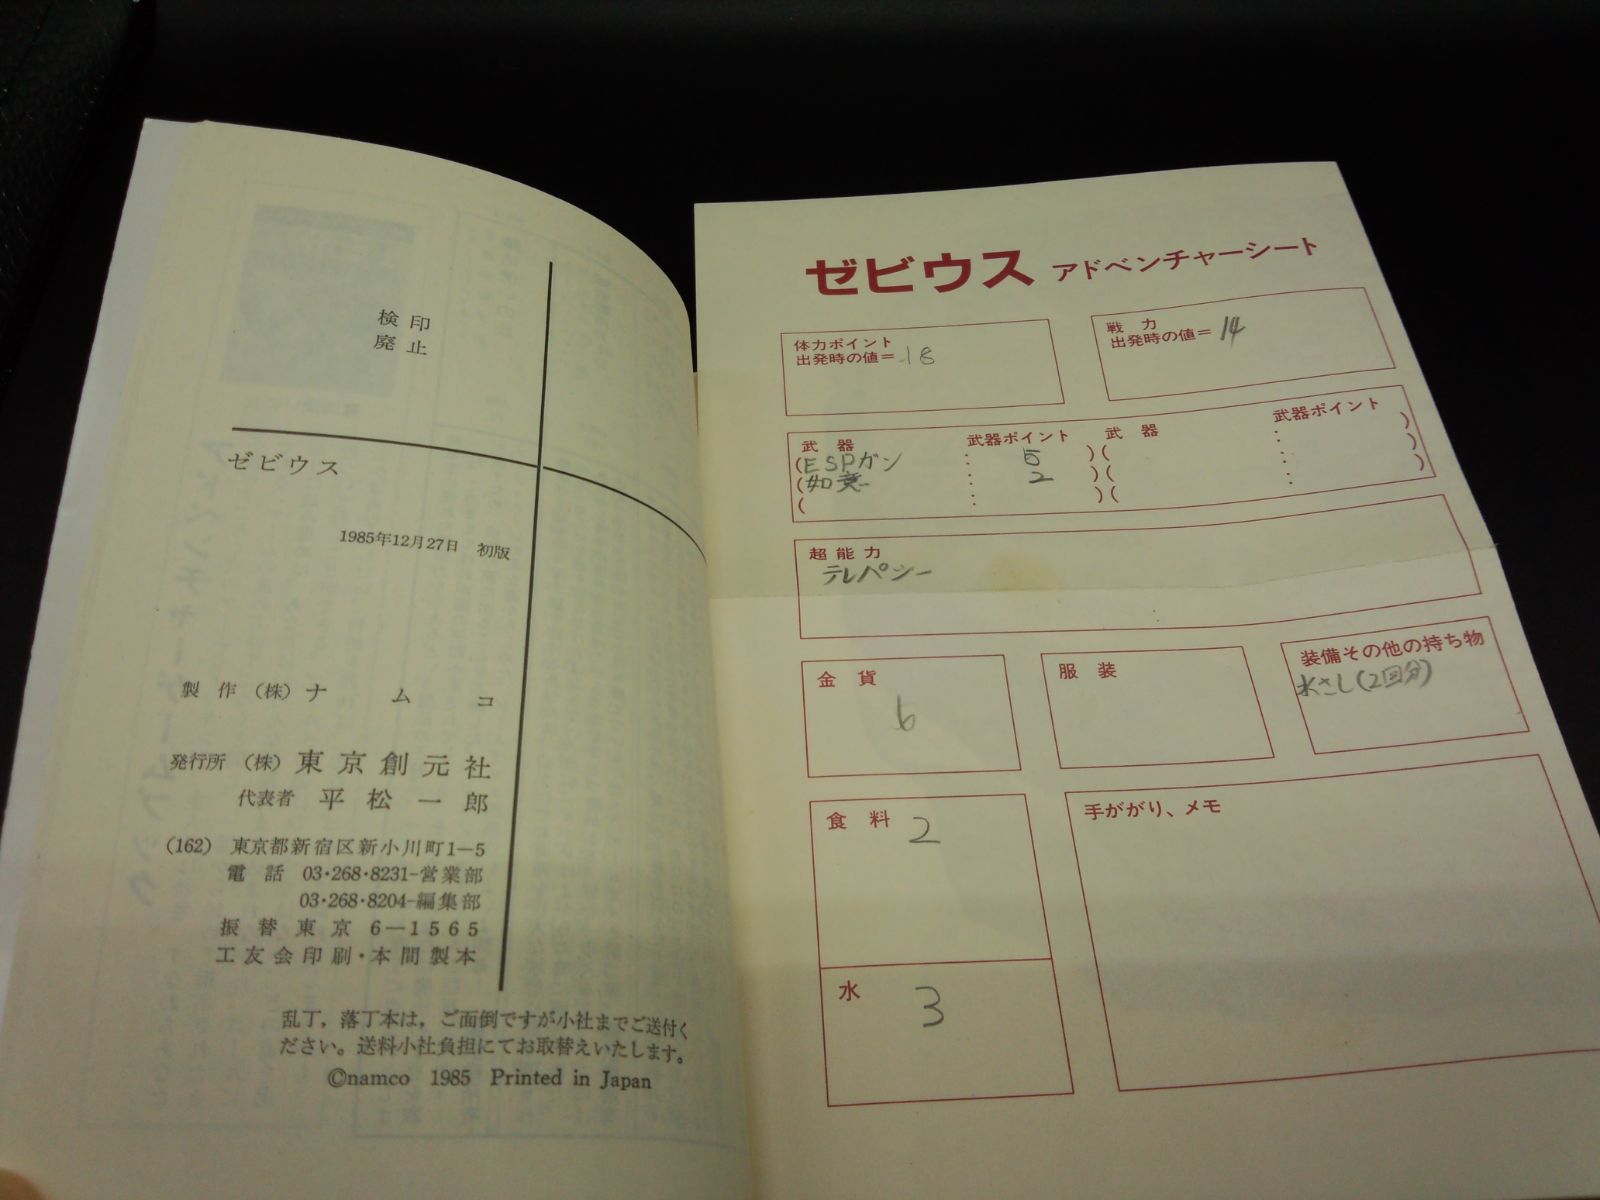 検印
廃止
ゼビウス
1985年12月27日 初版
製作 (株) ナムコ
発行所 (株) 東京創元社
代表者 平松一郎
(162) 東京都新宿区新小川町1—5
電話 03・268・8231-営業部
03・268・8204-編集部
振替東京 6—1565
工友会印刷・本間製本
乱丁，落丁本は，ご面倒ですが小社までご送付く
ださい。送料小社負担にてお取替えいたします。
©namco 1985 Printed in Japan
ゼビウス アドベンチャーシート
体力ポイント
出発時の値＝18
戦力
出発時の値＝14
武器 武器ポイント 武器 武器ポイント
(ESPガン : 5 )( : )
(如意 : 2 )( : )
( : )( : )
超能力
テレパシー
金貨
6
服装
装備その他の持ち物
水さし(2回分)
食料 2
水 3
手ががり、メモ